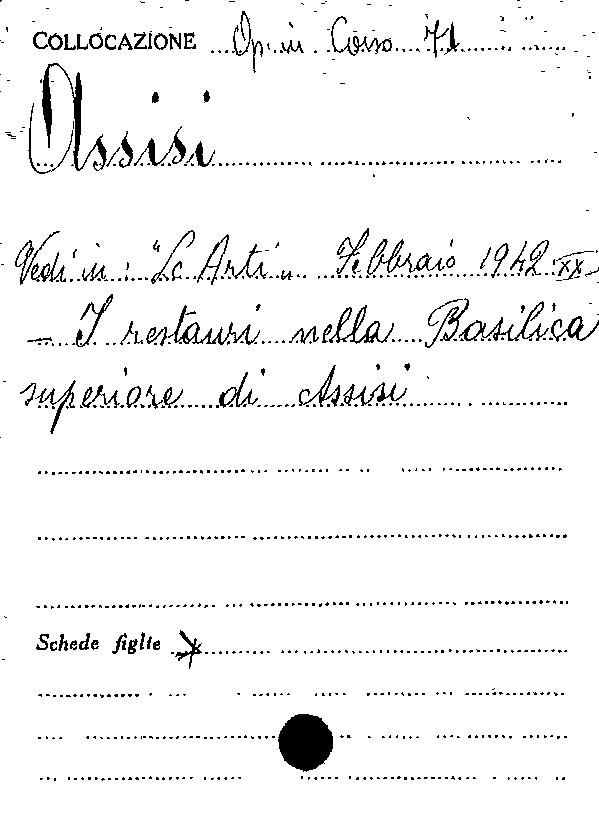 COLLOCAZIONE Op. in Corso 71
Assisi
Vedi in: "Le Arti" Febbraio 1942 XX
- I restauri nella Basilica
superiore di Assisi
Schede figlie